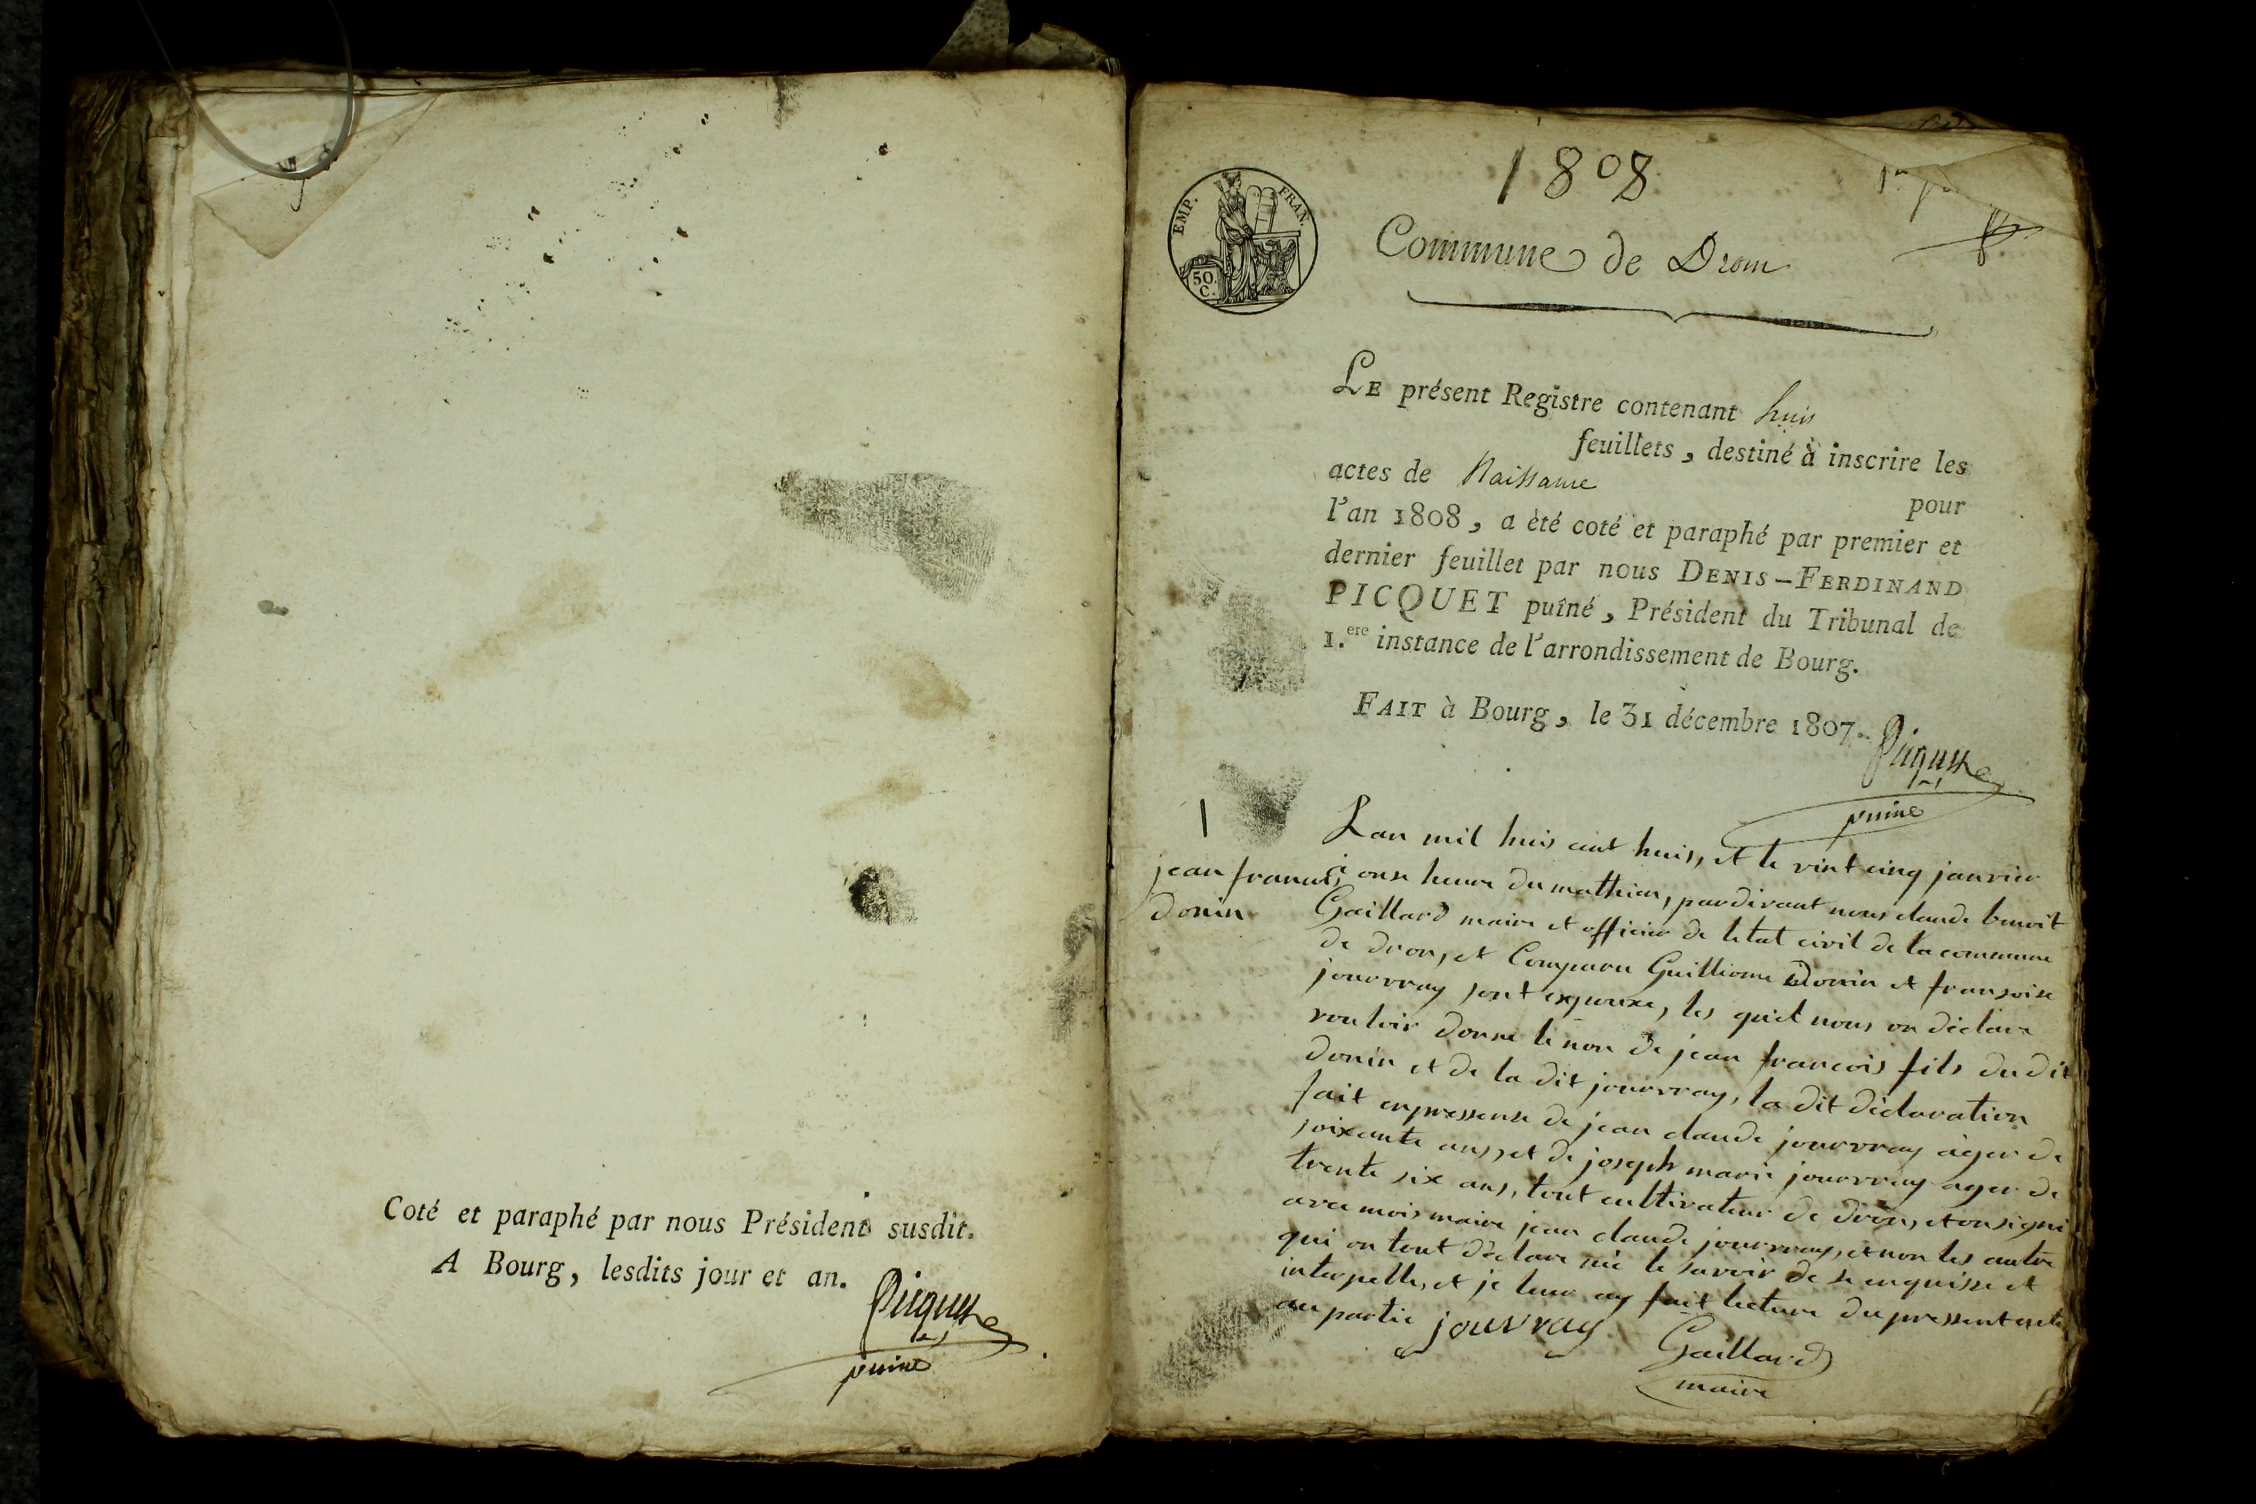 Coté et paraphé par nous Président susdit.
A Bourg, lesdits jour et an.
Picquet
puiné
1808
EMP. FRAN.
50. C.
Commune de Drom
LE présent Registre contenant huit
feuillets, destiné à inscrire les
actes de Naissance
pour
l'an 1808, a été coté et paraphé par premier et
dernier feuillet par nous DENIS-FERDINAND
PICQUET puîné, Président du Tribunal de
1.ere instance de l'arrondissement de Bourg.
FAIT à Bourg, le 31 décembre 1807.
Picquet
puiné
1
jean francois
donin
Lan mil huis cent huis, et le vint cinq janvier
à onse heure du mathien, pardivant nous claude benoit
Gaillard maire et officier de letat civil de la commune
de dron, et Comparu Guilliome Donin et fransoise
jouvray sont expouxe, les quel nous on déclare
vouloir donne le non de jean francois fils du dit
donin et de la dit jouvray, la dit déclaration
fait enpressense de jean claude jouvray àger de
soixante ans, et de joseph marie jouvray ager de
trente six ans, tout cultivateur de dron, et on signé
avec mois maire jean claude jouvray, et non les autre
qui on tout déclare né le savoir de se enquisse et
interpelle, et je leur ay fait lecture du pressent acte
au partie
jouvray
Gaillard
maire